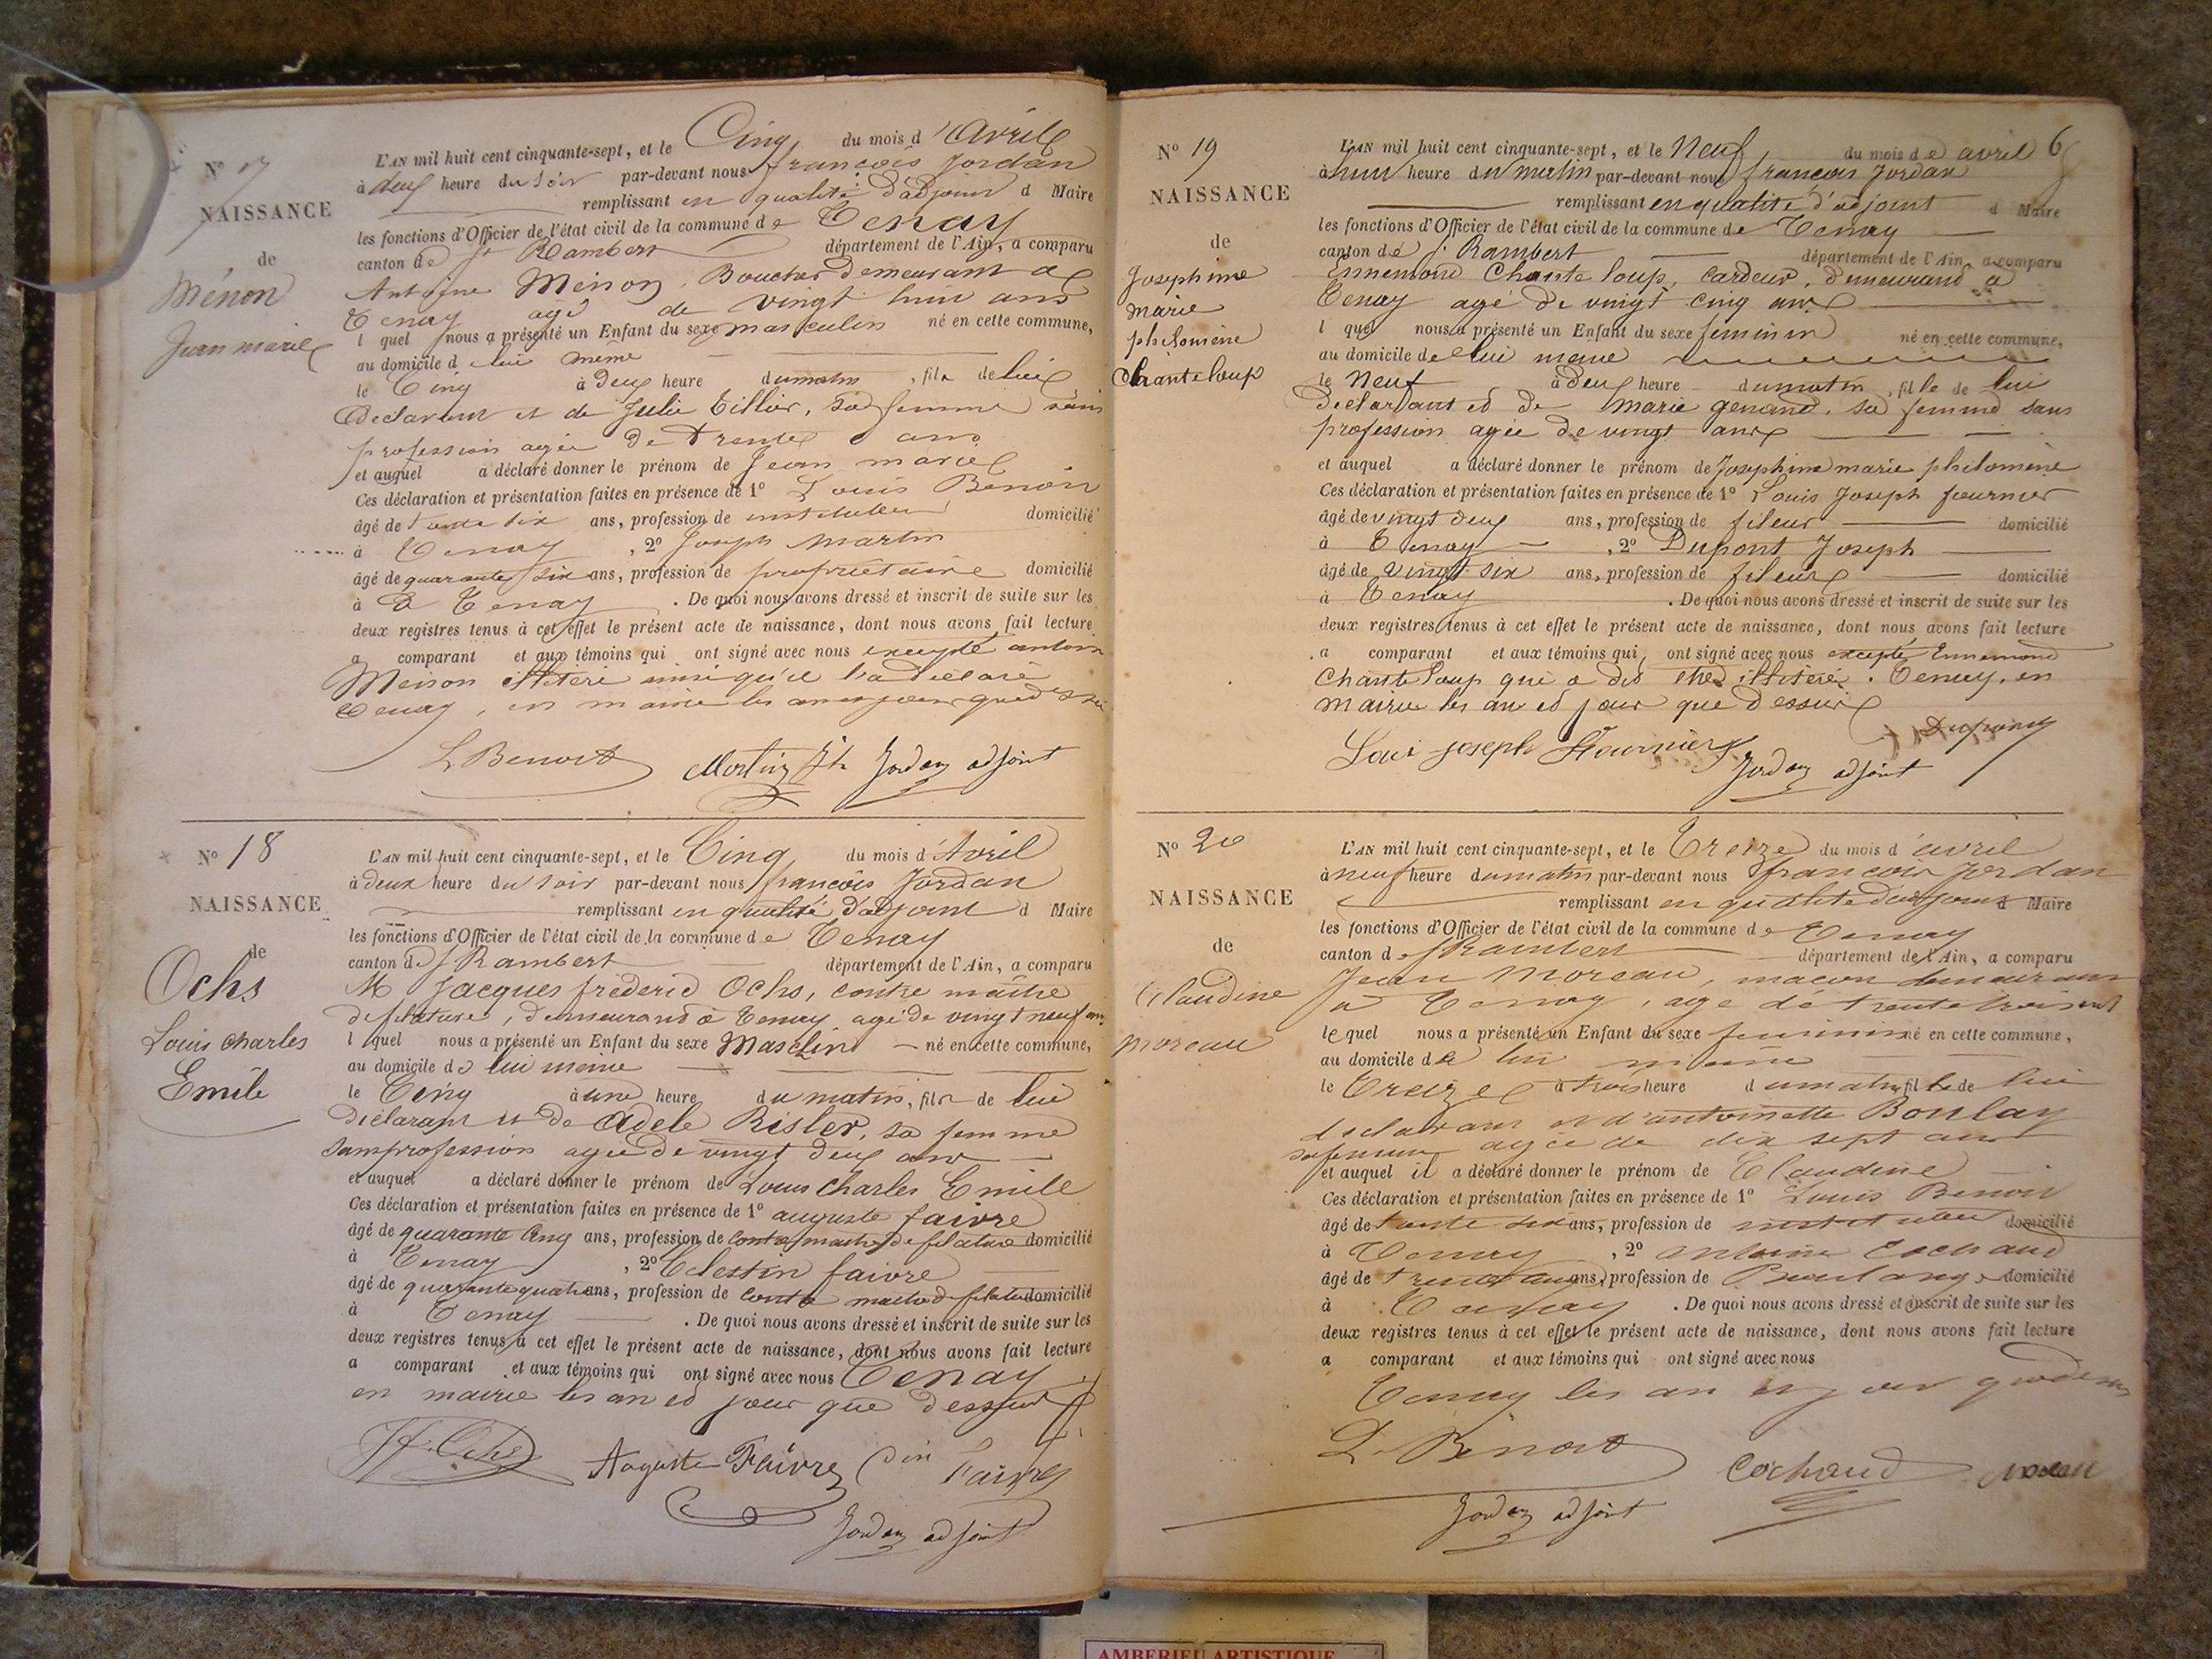 N° 17
NAISSANCE
de
Ménon
Jean marie
L'AN mil huit cent cinquante-sept, et le Cinq du mois d'Avril
à deux heure du soir par-devant nous françois Jordan
remplissant en qualité d'adjoint d Maire
les fonctions d'Officier de l'état civil de la commune de Tenay
canton de St Rambert département de l'Ain, a comparu
Antoine Ménon, Boucher demeurant a
Tenay agé de vingt huit ans
l quel nous a présenté un Enfant du sexe masculin né en cette commune,
au domicile de lui même
le Cinq à deux heure du matin, fils de lui
declarant et de Julie Tillier, sa femme sans
profession agée de trente ans
et auquel a déclaré donner le prénom de Jean marie
Ces déclaration et présentation faites en présence de 1° Louis Benoit
âgé de trente six ans, profession de instituteur domicilié
à Tenay, 2° Joseph Martin
âgé de quarante six ans, profession de propriétaire domicilié
à Tenay. De quoi nous avons dressé et inscrit de suite sur les
deux registres tenus à cet effet le présent acte de naissance, dont nous avons fait lecture
a comparant et aux témoins qui ont signé avec nous excepté antoine
Menon illitéré ainsi qu'il l'a déclaré
Tenay, en mairie les an et jour que dessus
L Benoit Martin Jh Jordan adjoint
N° 18
NAISSANCE
de
Ochs
Louis charles
Emile
L'AN mil huit cent cinquante-sept, et le Cinq du mois d'Avril
à deux heure du soir par-devant nous françois Jordan
remplissant en qualité d'adjoint d Maire
les fonctions d'Officier de l'état civil de la commune de Tenay
canton de St Rambert département de l'Ain, a comparu
M Jacques fréderic Ochs, contre maitre
de filature, demeurand a Tenay agé de vingt neuf ans
l quel nous a présenté un Enfant du sexe Masculin né en cette commune,
au domicile de lui meme
le Cinq à une heure du matin, fils de lui
déclarant et de Adele Risler, sa femme
sans profession agée de vingt deux ans
et auquel a déclaré donner le prénom de Louis charles Emile
Ces déclaration et présentation faites en présence de 1° auguste faivre
âgé de quarante cinq ans, profession de contre maitre de filature domicilié
à Tenay, 2° Celestin faivre
âgé de quarante quatre ans, profession de contre maitre de filature domicilié
à Tenay. De quoi nous avons dressé et inscrit de suite sur les
deux registres tenus à cet effet le présent acte de naissance, dont nous avons fait lecture
a comparant et aux témoins qui ont signé avec nous Tenay
en mairie les an ed jour que dessus
Jf. Ochs Auguste Faivre Faivre
Jordan adjoint
N° 19
NAISSANCE
de
Josephine
marie
philomène
Chanteloup
6
L'AN mil huit cent cinquante-sept, et le Neuf du mois de avril
à huit heure du matin par-devant nous françois Jordan
remplissant en qualité d'adjoint d Maire
les fonctions d'Officier de l'état civil de la commune de Tenay
canton de St Rambert département de l'Ain, a comparu
Ennemond Chante loup, cardeur, demeurand a
Tenay agé de vingt cinq ans
l quel nous a présenté un Enfant du sexe feminin né en cette commune,
au domicile de lui meme
le Neuf à deux heure du matin, fille de lui
declardant ed de Marie genand, sa femme sans
profession agée de vingt ans
et auquel a déclaré donner le prénom de Josephine marie philomène
Ces déclaration et présentation faites en présence de 1° Louis Joseph fournier
âgé de vingt deux ans, profession de fileur domicilié
à Tenay, 2° Dupont Joseph
âgé de vingt six ans, profession de fileur domicilié
à Tenay. De quoi nous avons dressé et inscrit de suite sur les
deux registres tenus à cet effet le présent acte de naissance, dont nous avons fait lecture
a comparant et aux témoins qui ont signé avec nous excepté Ennemond
Chanteloup qui a dit illitéré. Tenay, en
mairie les an ed jour que dessus
Dupont
Loui joseph Fournier Jordan adjoint
N° 20
NAISSANCE
de
Claudine
moreau
L'AN mil huit cent cinquante-sept, et le Treize du mois d'avril
à neuf heure du matin par-devant nous françois Jordan
remplissant en qualité d'adjoint d Maire
les fonctions d'Officier de l'état civil de la commune de Tenay
canton de St Rambert département de l'Ain, a comparu
Jean Moreau, maçon demeurant
à Tenay, agé de trente trois ans
le quel nous a présenté un Enfant du sexe feminin né en cette commune,
au domicile de lui meme
le Treize à trois heure du matin fille de lui
declarant et d'antoinette Boulay
sa femme agée de dix sept ans
et auquel il a déclaré donner le prénom de Claudine
Ces déclaration et présentation faites en présence de 1° Louis Benoit
âgé de trente six ans, profession de instituteur domicilié
à Tenay, 2° antoine Cochaud
âgé de ans, profession de Boulanger domicilié
à Tenay. De quoi nous avons dressé et inscrit de suite sur les
deux registres tenus à cet effet le présent acte de naissance, dont nous avons fait lecture
a comparant et aux témoins qui ont signé avec nous
Tenay les an et jour que dessus
L Benoit Cochaud
Jordan adjoint
AMBERIEU ARTISTIQUE